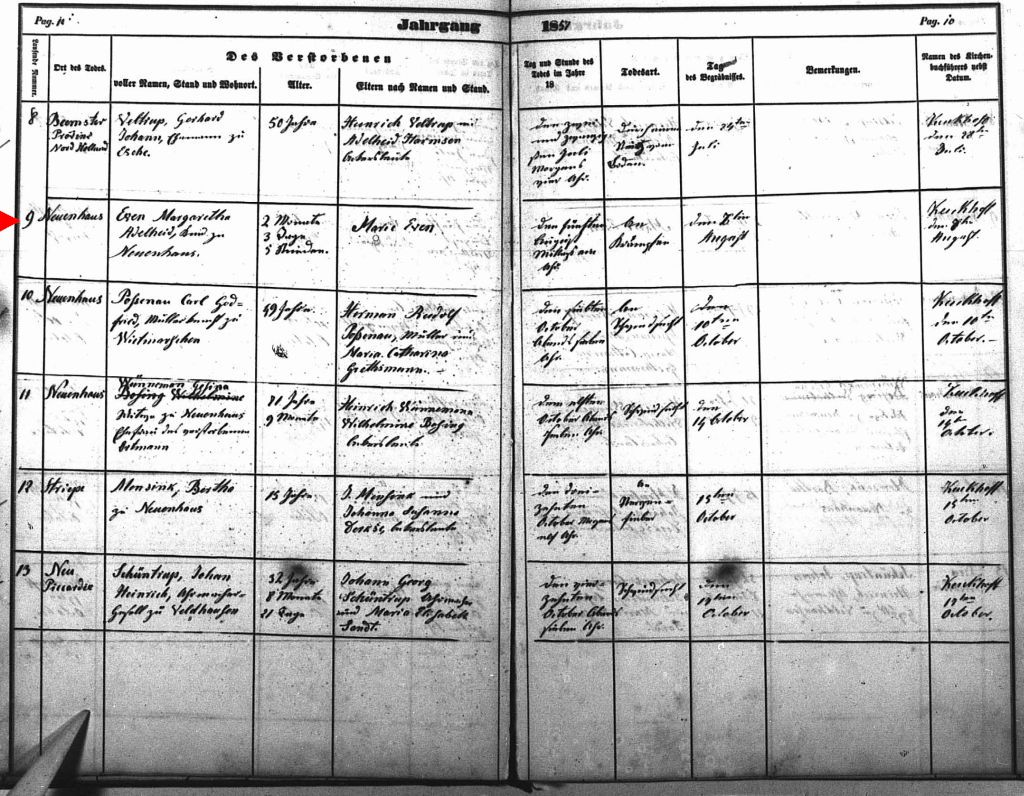 Pag. 11
Jahrgang
1857
Pag. 10
Laufende Nummer.
Ort des Todes.
Des Verstorbenen
voller Namen, Stand und Wohnort.
Alter.
Eltern nach Namen und Stand.
Tag und Stunde des
Todes im Jahre
18
Todesart.
Tag
des Begräbnisses.
Bemerkungen.
Namen des Kirchen-
buchführers nebst
Datum.
8
Beemster
Provinz
Nord Holland
Veltrup, Gerhard
Johann, Ehemann zu
Esche.
50 Jahre
Heinrich Veltrup und
Adelheid Harmsen
Ackersleute
den zwei
und zwanzig-
sten Juli
Morgens
vier Uhr.
Durch einen
vom
Boden.
den 24ten
Juli
Kerckhoff
den 28ten
Juli.
9
Neuenhaus
Even Margaretha
Adelheid, Kind zu
Neuenhaus.
2 Monate
3 Tage
5 Stunden.
Marie Even
den fünften
August
Mittags ein
Uhr.
An
Krämpfen
den 8ten
August
Kerckhoff
den 8ten
August.
10
Neuenhaus
Poßenau Carl God-
fried, Müllerknecht zu
Wietmarschen
59 Jahre
Herman Rudolf
Poßenau, Müller und
Maria Catharina
Grethsmann.
den siebten
October
Abends sieben
Uhr.
An
Schwindsucht
den
10ten
October
Kerckhoff
den 10ten
October.
11
Neuenhaus
Wünneman Gesina
Bosing Wilhelmine
zu Neuenhaus
Ehefrau des verstorbenen
81 Jahre
9 Monate
Heinrich Wünnemann
Wilhelmine Bosing
Ackersleute
den elften
October Abends
sieben Uhr.
Schwindsucht
den
14 October
Kerckhoff
den
14te
October.
12
Striepe
Mensink, Bertha
zu Neuenhaus
15 Jahre
J. Mensink und
Johanna Susanna
Derksc, Ackersleute
den drei-
zehnten
October Morgens
Uhr
An
Nerven-
fieber
15ten
October
Kerckhoff
15ten
October
13
Neu
Piccardie
Schüntrup, Johan
Heinrich, Uhrmacher-
Gesell zu Veldhausen
32 Jahre
8 Monate
21 Tage
Johann Georg
Schüntrup Uhrmacher
und Maria Elisabeth
Sandt.
den vier-
zehnten
October Abends
sieben Uhr.
Schwindsucht
den
17ten
October
Kerckhoff
17ten
October.